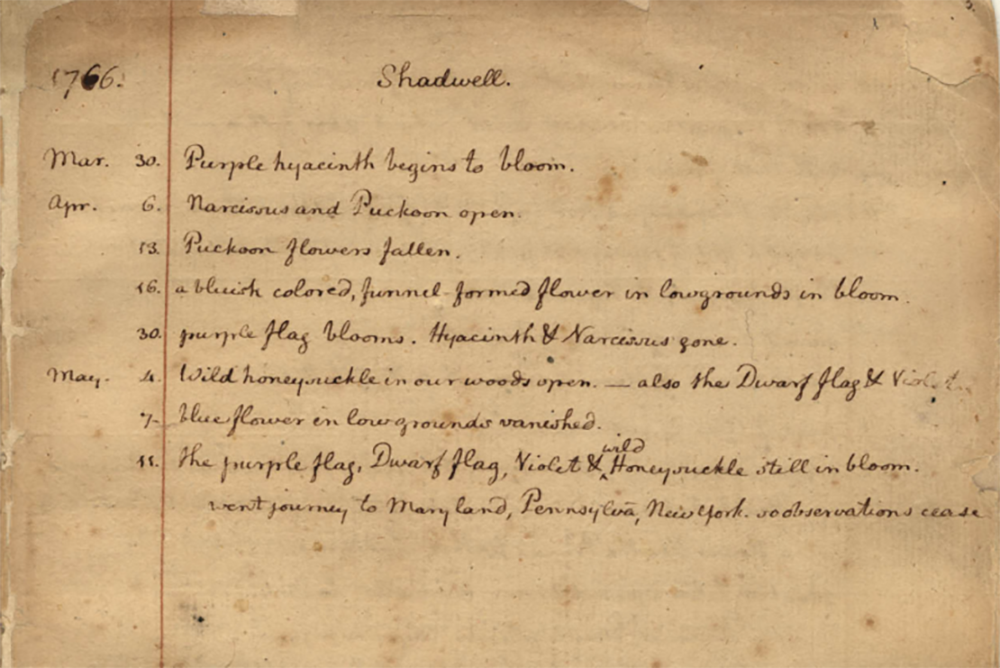 1766. Shadwell.
Mar. 30. Purple hyacinth begins to bloom.
Apr. 6. Narcissus and Puckoon open.
13. Puckoon flowers fallen.
16. a bluish colored, funnel-formed flower in lowgrounds in bloom.
30. purple flag blooms. Hyacinth & Narcissus gone.
May. 4. Wild honeysuckle in our woods open. — also the Dwarf flag & Violets
7. blue flower in lowgrounds vanished.
11. the purple flag, Dwarf flag, Violet & wild Honeysuckle still in bloom.
went journey to Maryland, Pennsylvã, New York. so observations cease